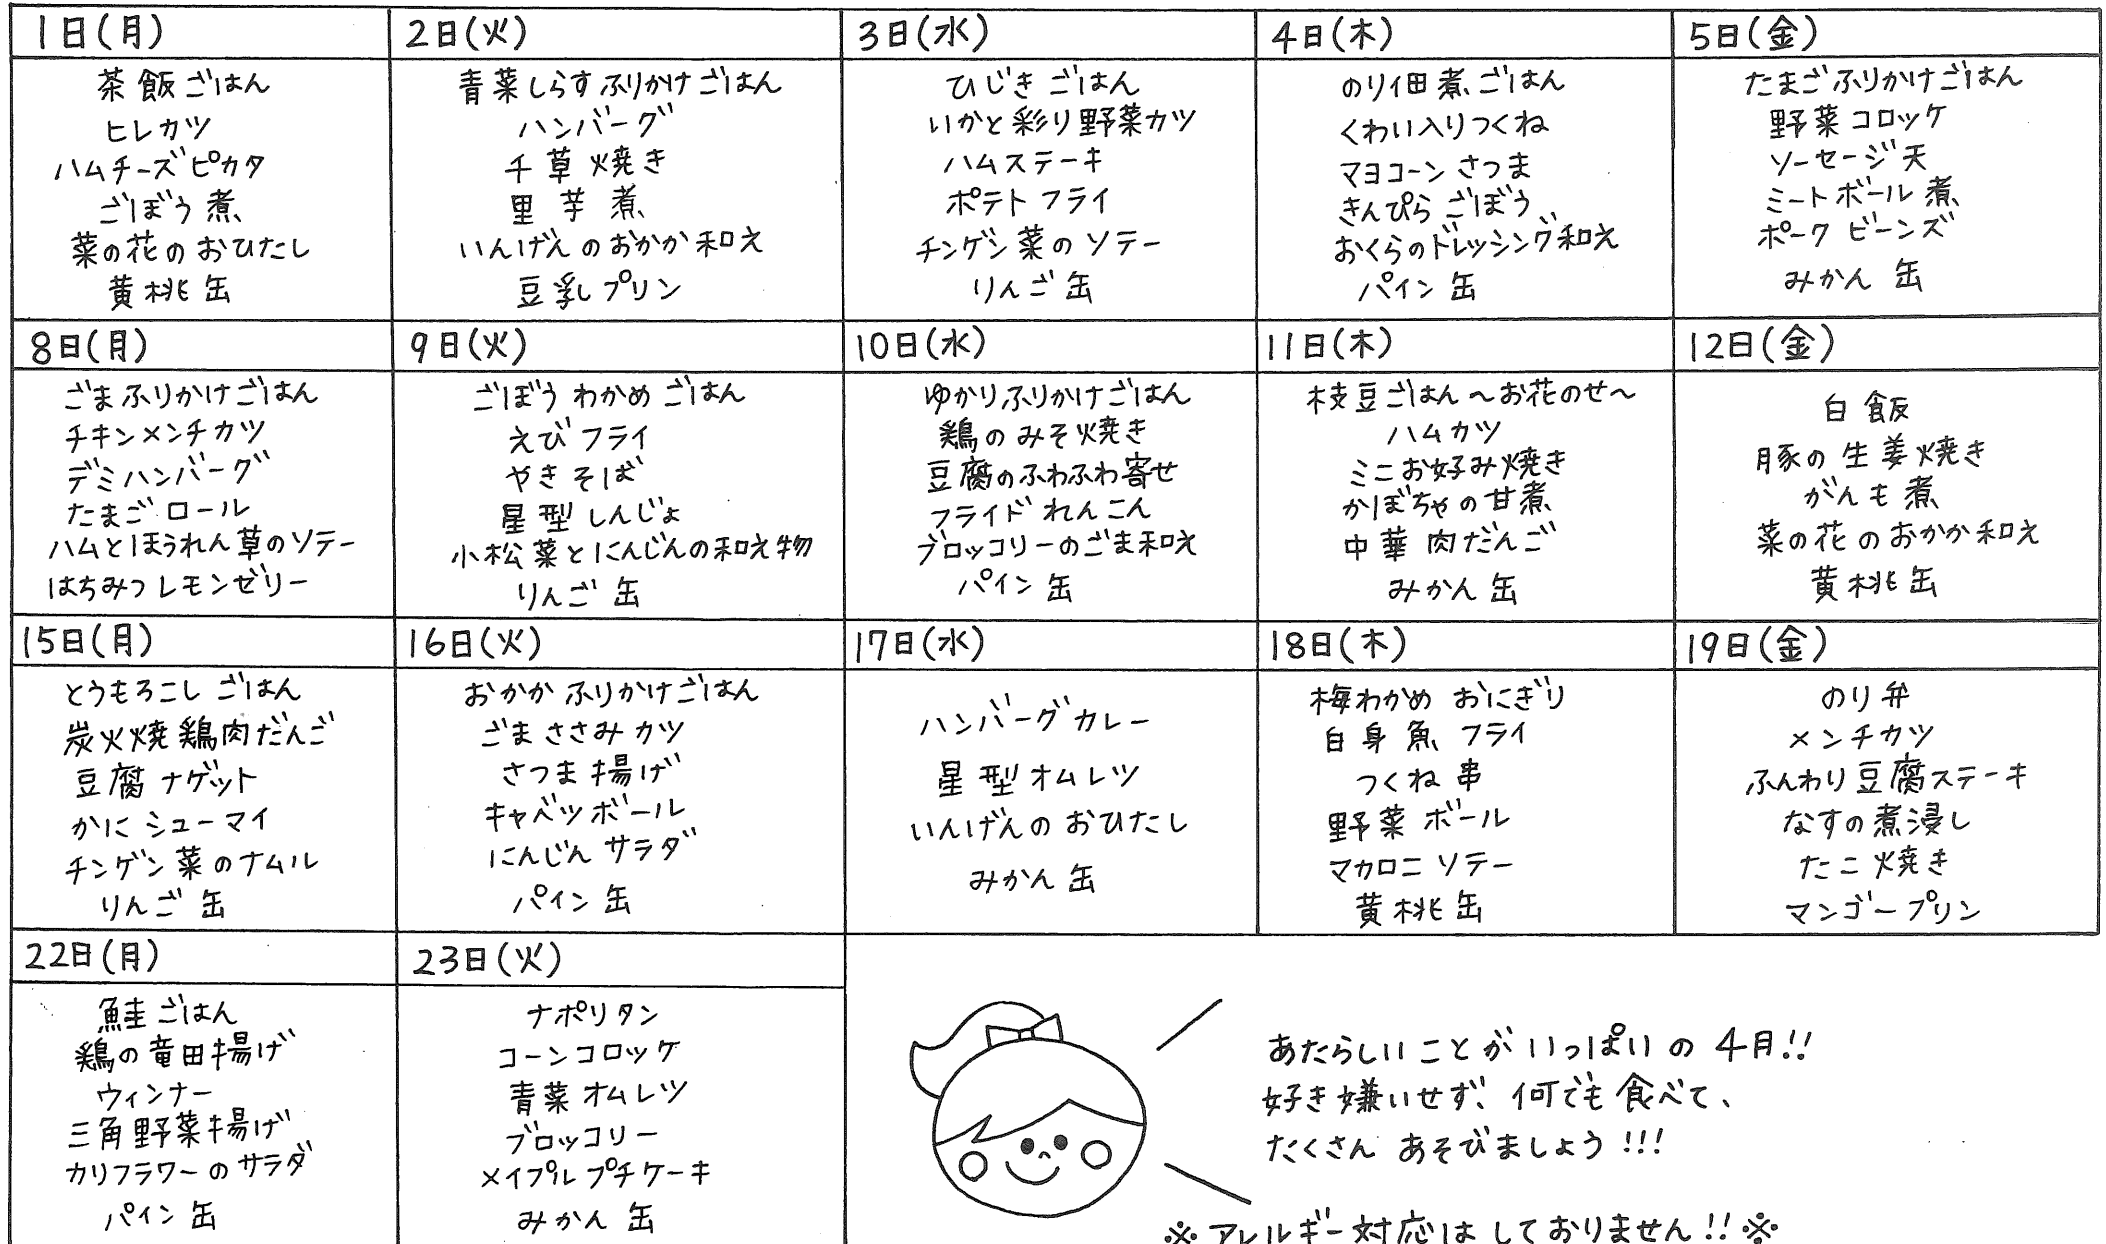 1日(月)
茶飯ごはん
ヒレカツ
ハムチーズピカタ
ごぼう煮
菜の花のおひたし
黄桃缶
2日(火)
青菜しらすふりかけごはん
ハンバーグ
千草焼き
里芋煮
いんげんのおかか和え
豆乳プリン
3日(水)
ひじきごはん
いかと彩り野菜カツ
ハムステーキ
ポテトフライ
チンゲン菜のソテー
りんご缶
4日(木)
のり佃煮ごはん
くわい入りつくね
マヨコーンさつま
きんぴらごぼう
おくらのドレッシング和え
パイン缶
5日(金)
たまごふりかけごはん
野菜コロッケ
ソーセージ天
ミートボール煮
ポークビーンズ
みかん缶
8日(月)
ごまふりかけごはん
チキンメンチカツ
デミハンバーグ
たまごロール
ハムとほうれん草のソテー
はちみつレモンゼリー
9日(火)
ごぼうわかめごはん
えびフライ
やきそば
星型しんじょ
小松菜とにんじんの和え物
りんご缶
10日(水)
ゆかりふりかけごはん
鶏のみそ焼き
豆腐のふわふわ寄せ
フライドれんこん
ブロッコリーのごま和え
パイン缶
11日(木)
枝豆ごはん～お花のせ～
ハムカツ
ミニお好み焼き
かぼちゃの甘煮
中華肉だんご
みかん缶
12日(金)
白飯
豚の生姜焼き
がんも煮
菜の花のおかか和え
黄桃缶
15日(月)
とうもろこしごはん
炭火焼鶏肉だんご
豆腐ナゲット
かにシューマイ
チンゲン菜のナムル
りんご缶
16日(火)
おかかふりかけごはん
ごまささみカツ
さつま揚げ
キャベツボール
にんじんサラダ
パイン缶
17日(水)
ハンバーグカレー
星型オムレツ
いんげんのおひたし
みかん缶
18日(木)
梅わかめおにぎり
白身魚フライ
つくね串
野菜ボール
マカロニソテー
黄桃缶
19日(金)
のり弁
メンチカツ
ふんわり豆腐ステーキ
なすの煮浸し
たこ焼き
マンゴープリン
22日(月)
鮭ごはん
鶏の竜田揚げ
ウィンナー
三角野菜揚げ
カリフラワーのサラダ
パイン缶
23日(火)
ナポリタン
コーンコロッケ
青菜オムレツ
ブロッコリー
メイプルプチケーキ
みかん缶
あたらしいことがいっぱいの4月!!
好き嫌いせず、何でも食べて、
たくさんあそびましょう!!!
※アレルギー対応はしておりません!!※